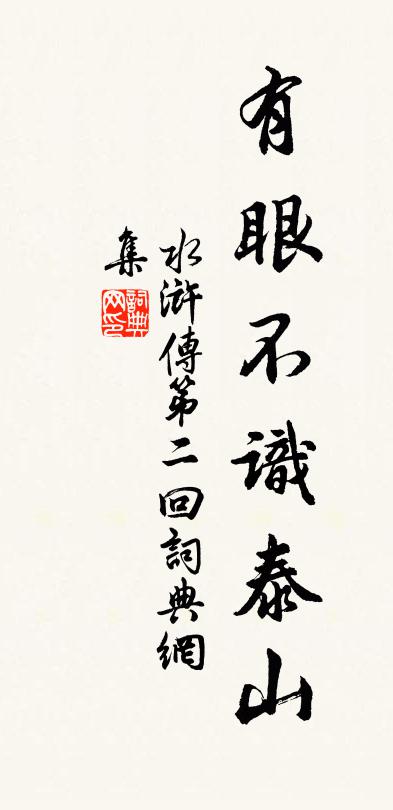 有眼不識泰山
水滸傳第二回詞典網
集
詞典网印